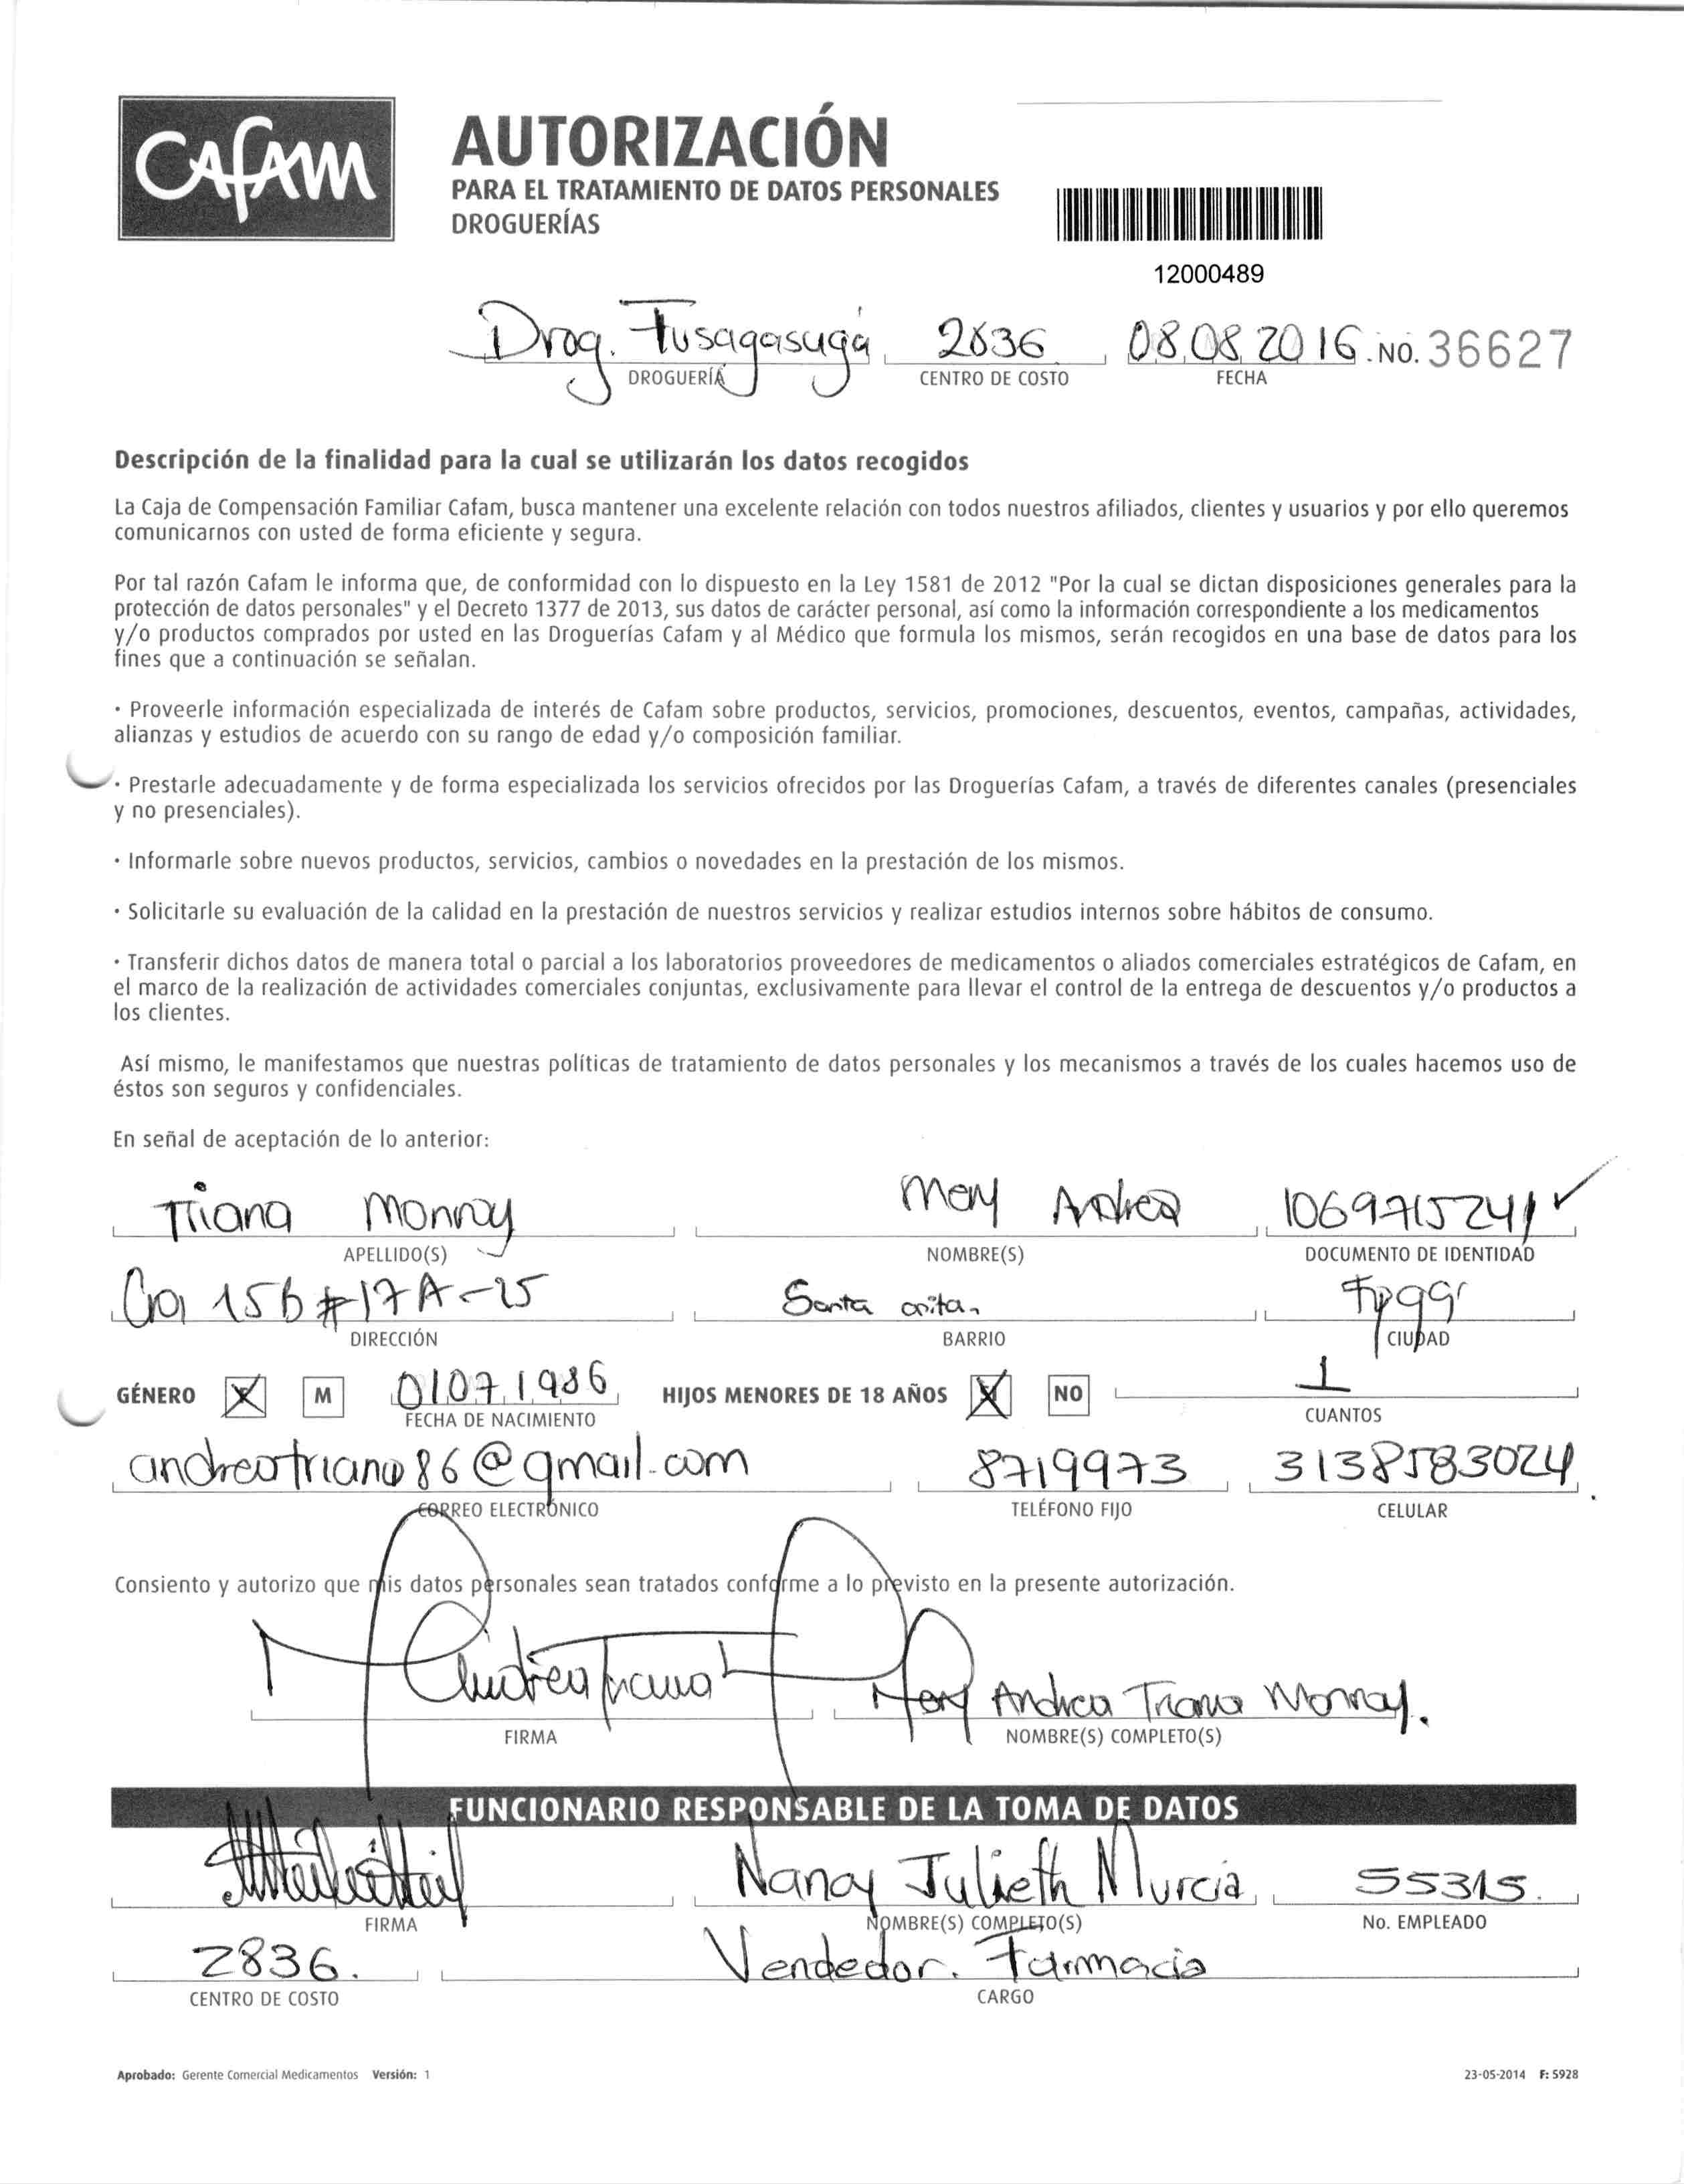 CAFAM
AUTORIZACIÓN
PARA EL TRATAMIENTO DE DATOS PERSONALES
DROGUERÍAS
12000489
Drog. Fusagasuga 2836 08.08.2016 NO. 36627
DROGUERÍA CENTRO DE COSTO FECHA
Descripción de la finalidad para la cual se utilizarán los datos recogidos
La Caja de Compensación Familiar Cafam, busca mantener una excelente relación con todos nuestros afiliados, clientes y usuarios y por ello queremos
comunicarnos con usted de forma eficiente y segura.
Por tal razón Cafam le informa que, de conformidad con lo dispuesto en la Ley 1581 de 2012 "Por la cual se dictan disposiciones generales para la
protección de datos personales" y el Decreto 1377 de 2013, sus datos de carácter personal, así como la información correspondiente a los medicamentos
y/o productos comprados por usted en las Droguerías Cafam y al Médico que formula los mismos, serán recogidos en una base de datos para los
fines que a continuación se señalan.
· Proveerle información especializada de interés de Cafam sobre productos, servicios, promociones, descuentos, eventos, campañas, actividades,
alianzas y estudios de acuerdo con su rango de edad y/o composición familiar.
· Prestarle adecuadamente y de forma especializada los servicios ofrecidos por las Droguerías Cafam, a través de diferentes canales (presenciales
y no presenciales).
· Informarle sobre nuevos productos, servicios, cambios o novedades en la prestación de los mismos.
· Solicitarle su evaluación de la calidad en la prestación de nuestros servicios y realizar estudios internos sobre hábitos de consumo.
· Transferir dichos datos de manera total o parcial a los laboratorios proveedores de medicamentos o aliados comerciales estratégicos de Cafam, en
el marco de la realización de actividades comerciales conjuntas, exclusivamente para llevar el control de la entrega de descuentos y/o productos a
los clientes.
Así mismo, le manifestamos que nuestras políticas de tratamiento de datos personales y los mecanismos a través de los cuales hacemos uso de
éstos son seguros y confidenciales.
En señal de aceptación de lo anterior:
Triana Monroy Mery Andrea 1069715241
APELLIDO(S) NOMBRE(S) DOCUMENTO DE IDENTIDAD
Cra 15b #17A-25 Santa anita.
DIRECCIÓN BARRIO CIUDAD
GÉNERO X M 01071986 HIJOS MENORES DE 18 AÑOS X NO 1
FECHA DE NACIMIENTO CUANTOS
andreatriana86@gmail.com 8719973 3138583024
CORREO ELECTRÓNICO TELÉFONO FIJO CELULAR
Consiento y autorizo que mis datos personales sean tratados conforme a lo previsto en la presente autorización.
Andrea Triana Mery Andrea Triana Monroy.
FIRMA NOMBRE(S) COMPLETO(S)
FUNCIONARIO RESPONSABLE DE LA TOMA DE DATOS
Nancy Julieth Murcia 55315.
FIRMA NOMBRE(S) COMPLETO(S) No. EMPLEADO
2836. Vendedor. Farmacia
CENTRO DE COSTO CARGO
Aprobado: Gerente Comercial Medicamentos Versión: 1 23-05-2014 F: 5928